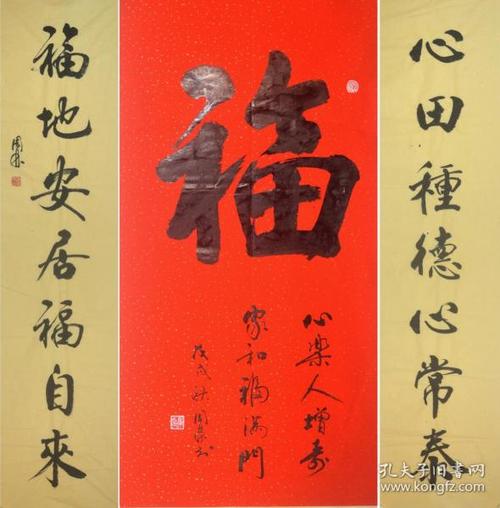 心田種德心常泰
福
心樂人增壽
家和福滿門
戊戌秋周
福地安居福自來
周
孔夫子旧书网
www.kongfz.com